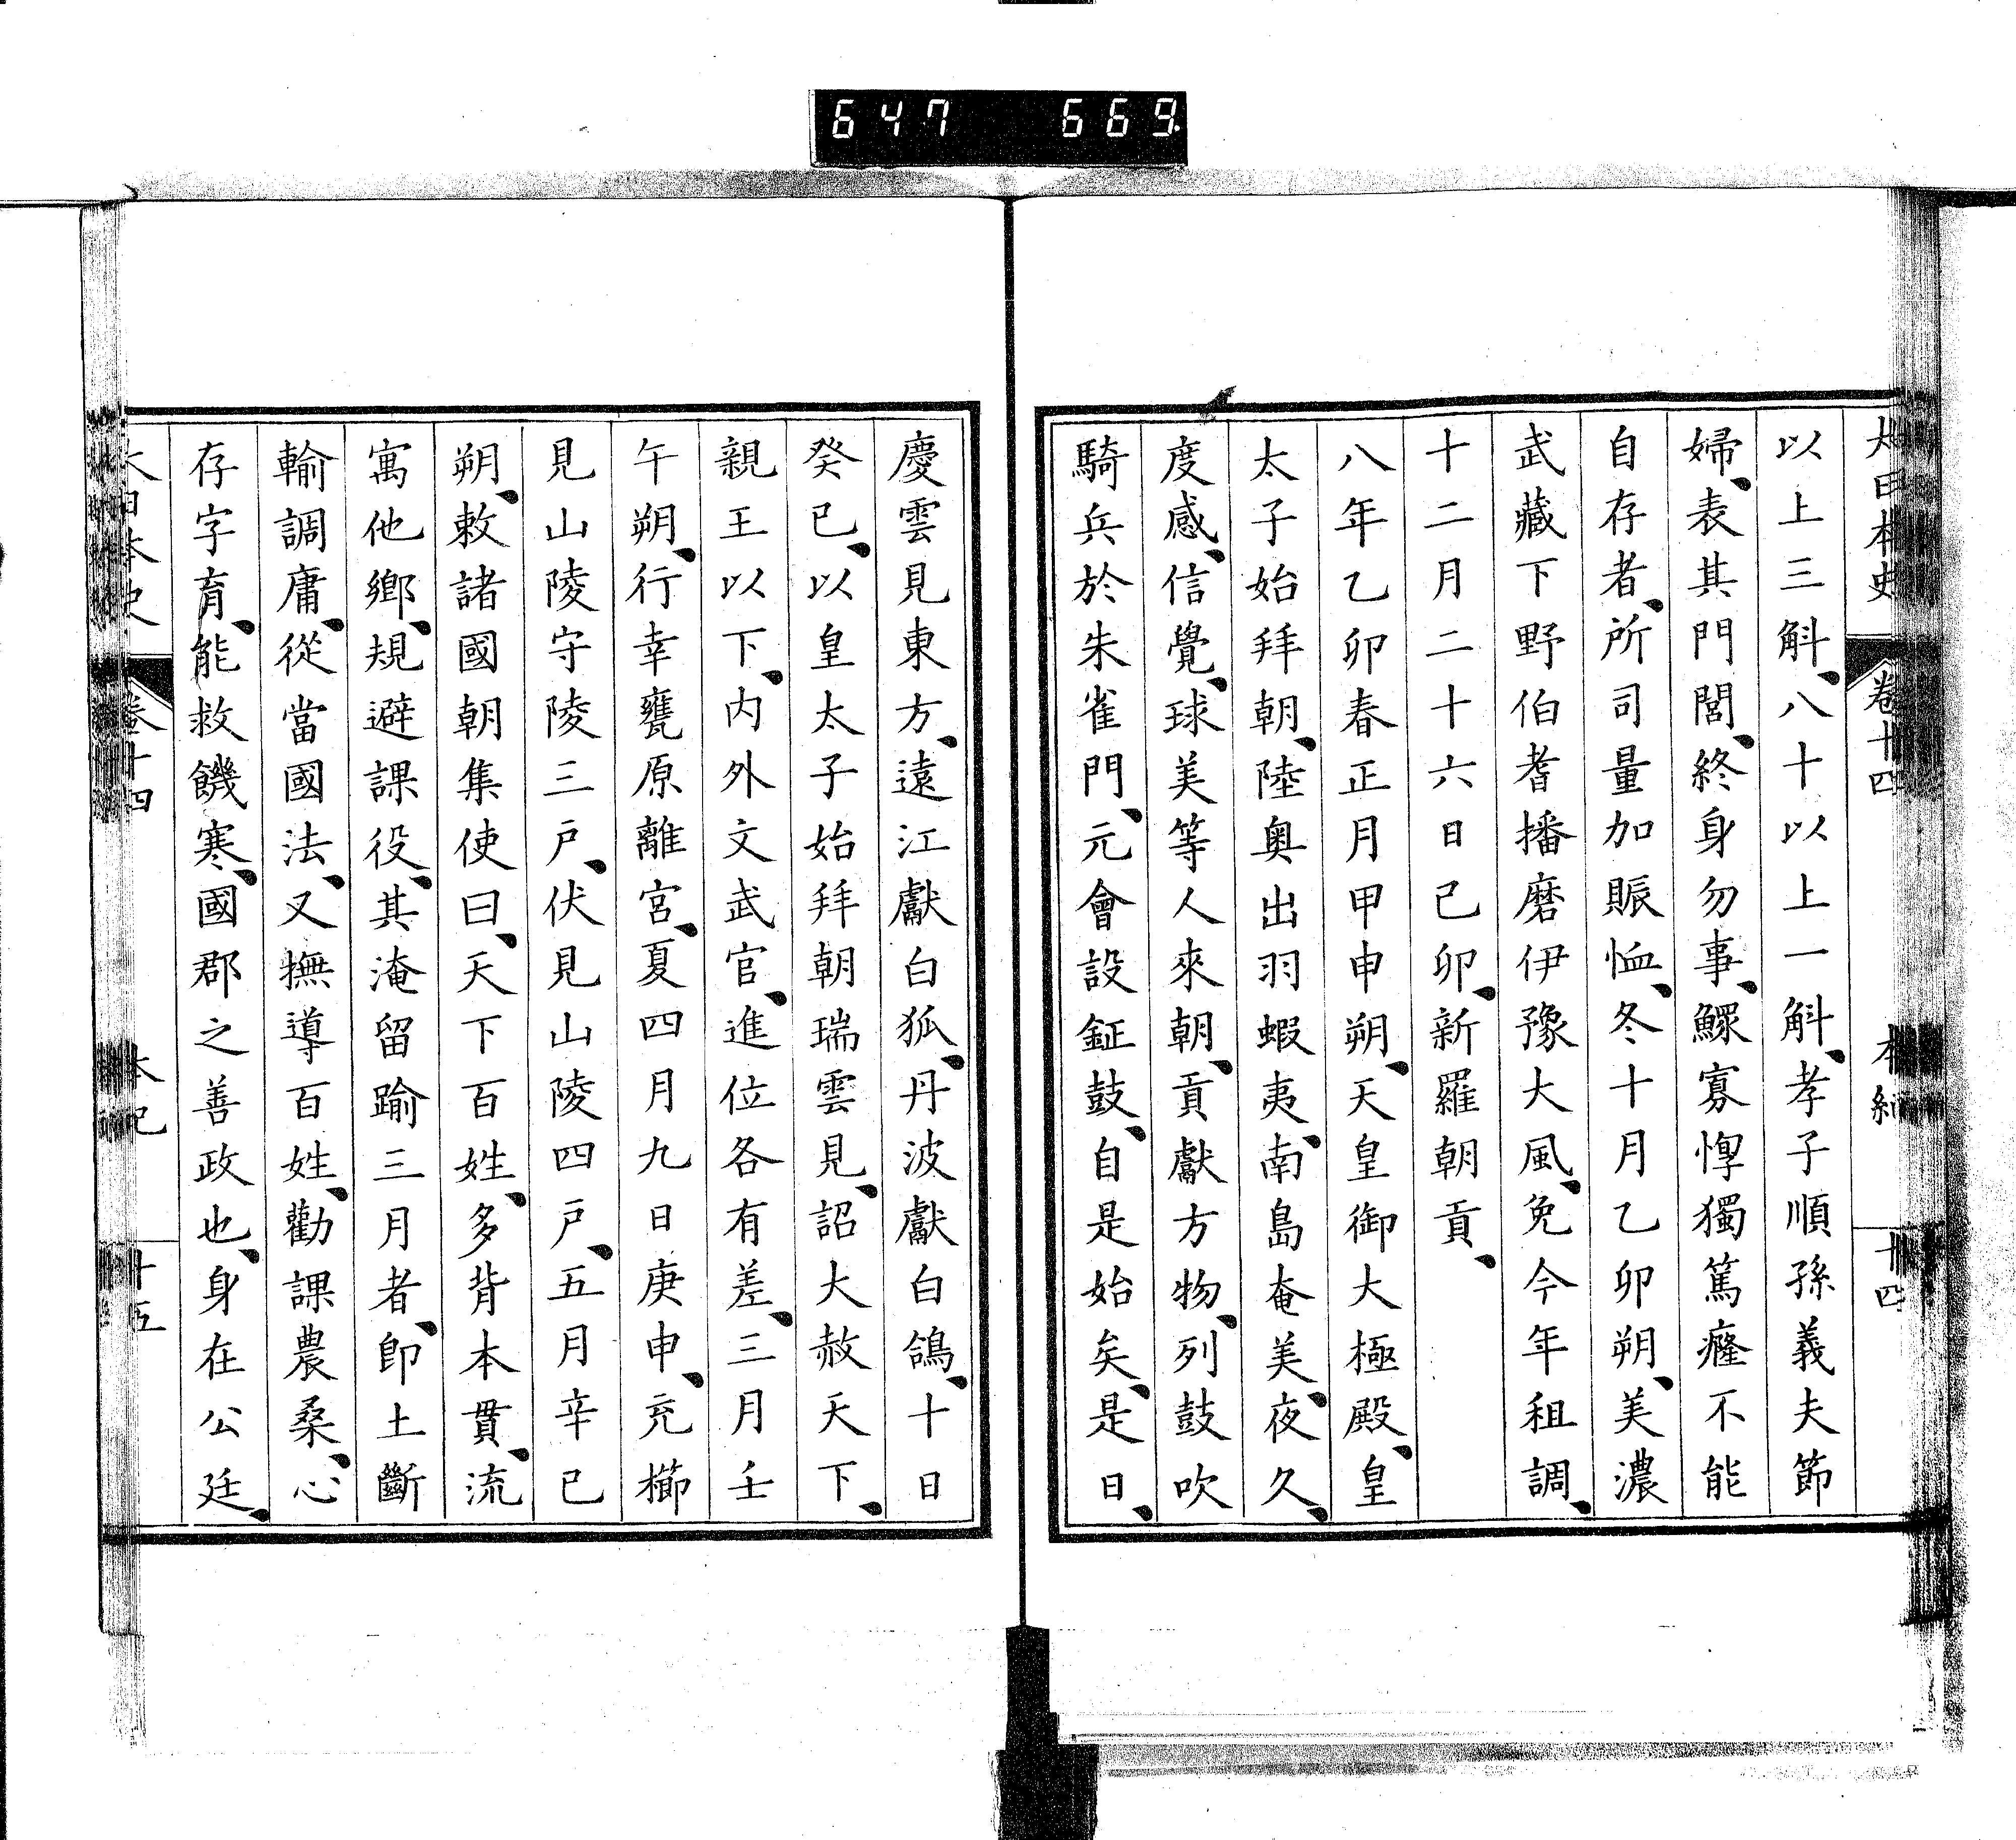 647 669.
大日本史 卷十四 本紀 十四
以上三斛、八十以上一斛、孝子順孫義夫節
婦、表其門閭、終身勿事、鰥寡惸獨篤癃不能
自存者、所司量加賑恤、冬十月乙卯朔、美濃
武藏下野伯耆播磨伊豫大風、免今年租調、
十二月二十六日己卯、新羅朝貢、
八年乙卯春正月甲申朔、天皇御大極殿、皇
太子始拜朝、陸奧出羽蝦夷、南島奄美、夜久、
度感、信覺、球美等人來朝、貢獻方物、列鼓吹
騎兵於朱雀門、元會設鉦鼓、自是始矣、是日、
慶雲見東方、遠江獻白狐、丹波獻白鴿、十日
癸巳、以皇太子始拜朝瑞雲見、詔大赦天下、
親王以下、内外文武官、進位各有差、三月壬
午朔、行幸甕原離宮、夏四月九日庚申、充櫛
見山陵守陵三戸、伏見山陵四戸、五月辛巳
朔、敕諸國朝集使曰、天下百姓、多背本貫、流
寓他鄉、規避課役、其淹留踰三月者、卽土斷
輸調庸、從當國法、又撫導百姓、勸課農桑、心
存字育、能救饑寒、國郡之善政也、身在公廷、
大日本史 卷十四 本紀 十五